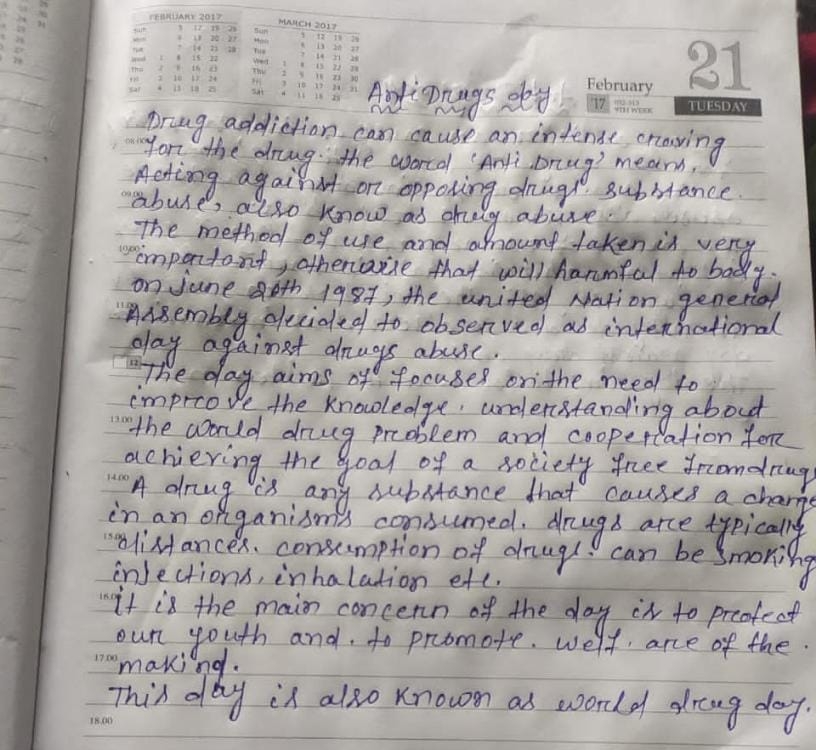 FEBRUARY 2017
MARCH 2017
21
February
TUESDAY
'17
9TH WEEK
Anti Drugs day
Drug addiction can cause an intense craving
for the drug. the world 'Anti Drug' means,
Acting against or opposing drugs. substance.
abuse, also know as drug abuse.
The method of use and amount taken is very
important, otherwise that will harmful to body.
on June 1987, the united Nation general
Assembly decided to observed as international
day against drugs abuse.
The day aims of focuses on the need to
improve the knowledge. understanding about
the world drug problem and cooperation for
achiering the goal of a society free from drugs
A drug is any substance that causes a change
in an organisms consumed. drugs are typically
distances. consumption of drugs. can be smoking
injections, inhalation etc.
it is the main concern of the day is to protect
our youth and. to promote. welf. are of the.
making.
This day is also known as world drug day.
08.00
09.00
10.00
11.00
12
13.00
14.00
15.00
16.00
17.00
18.00